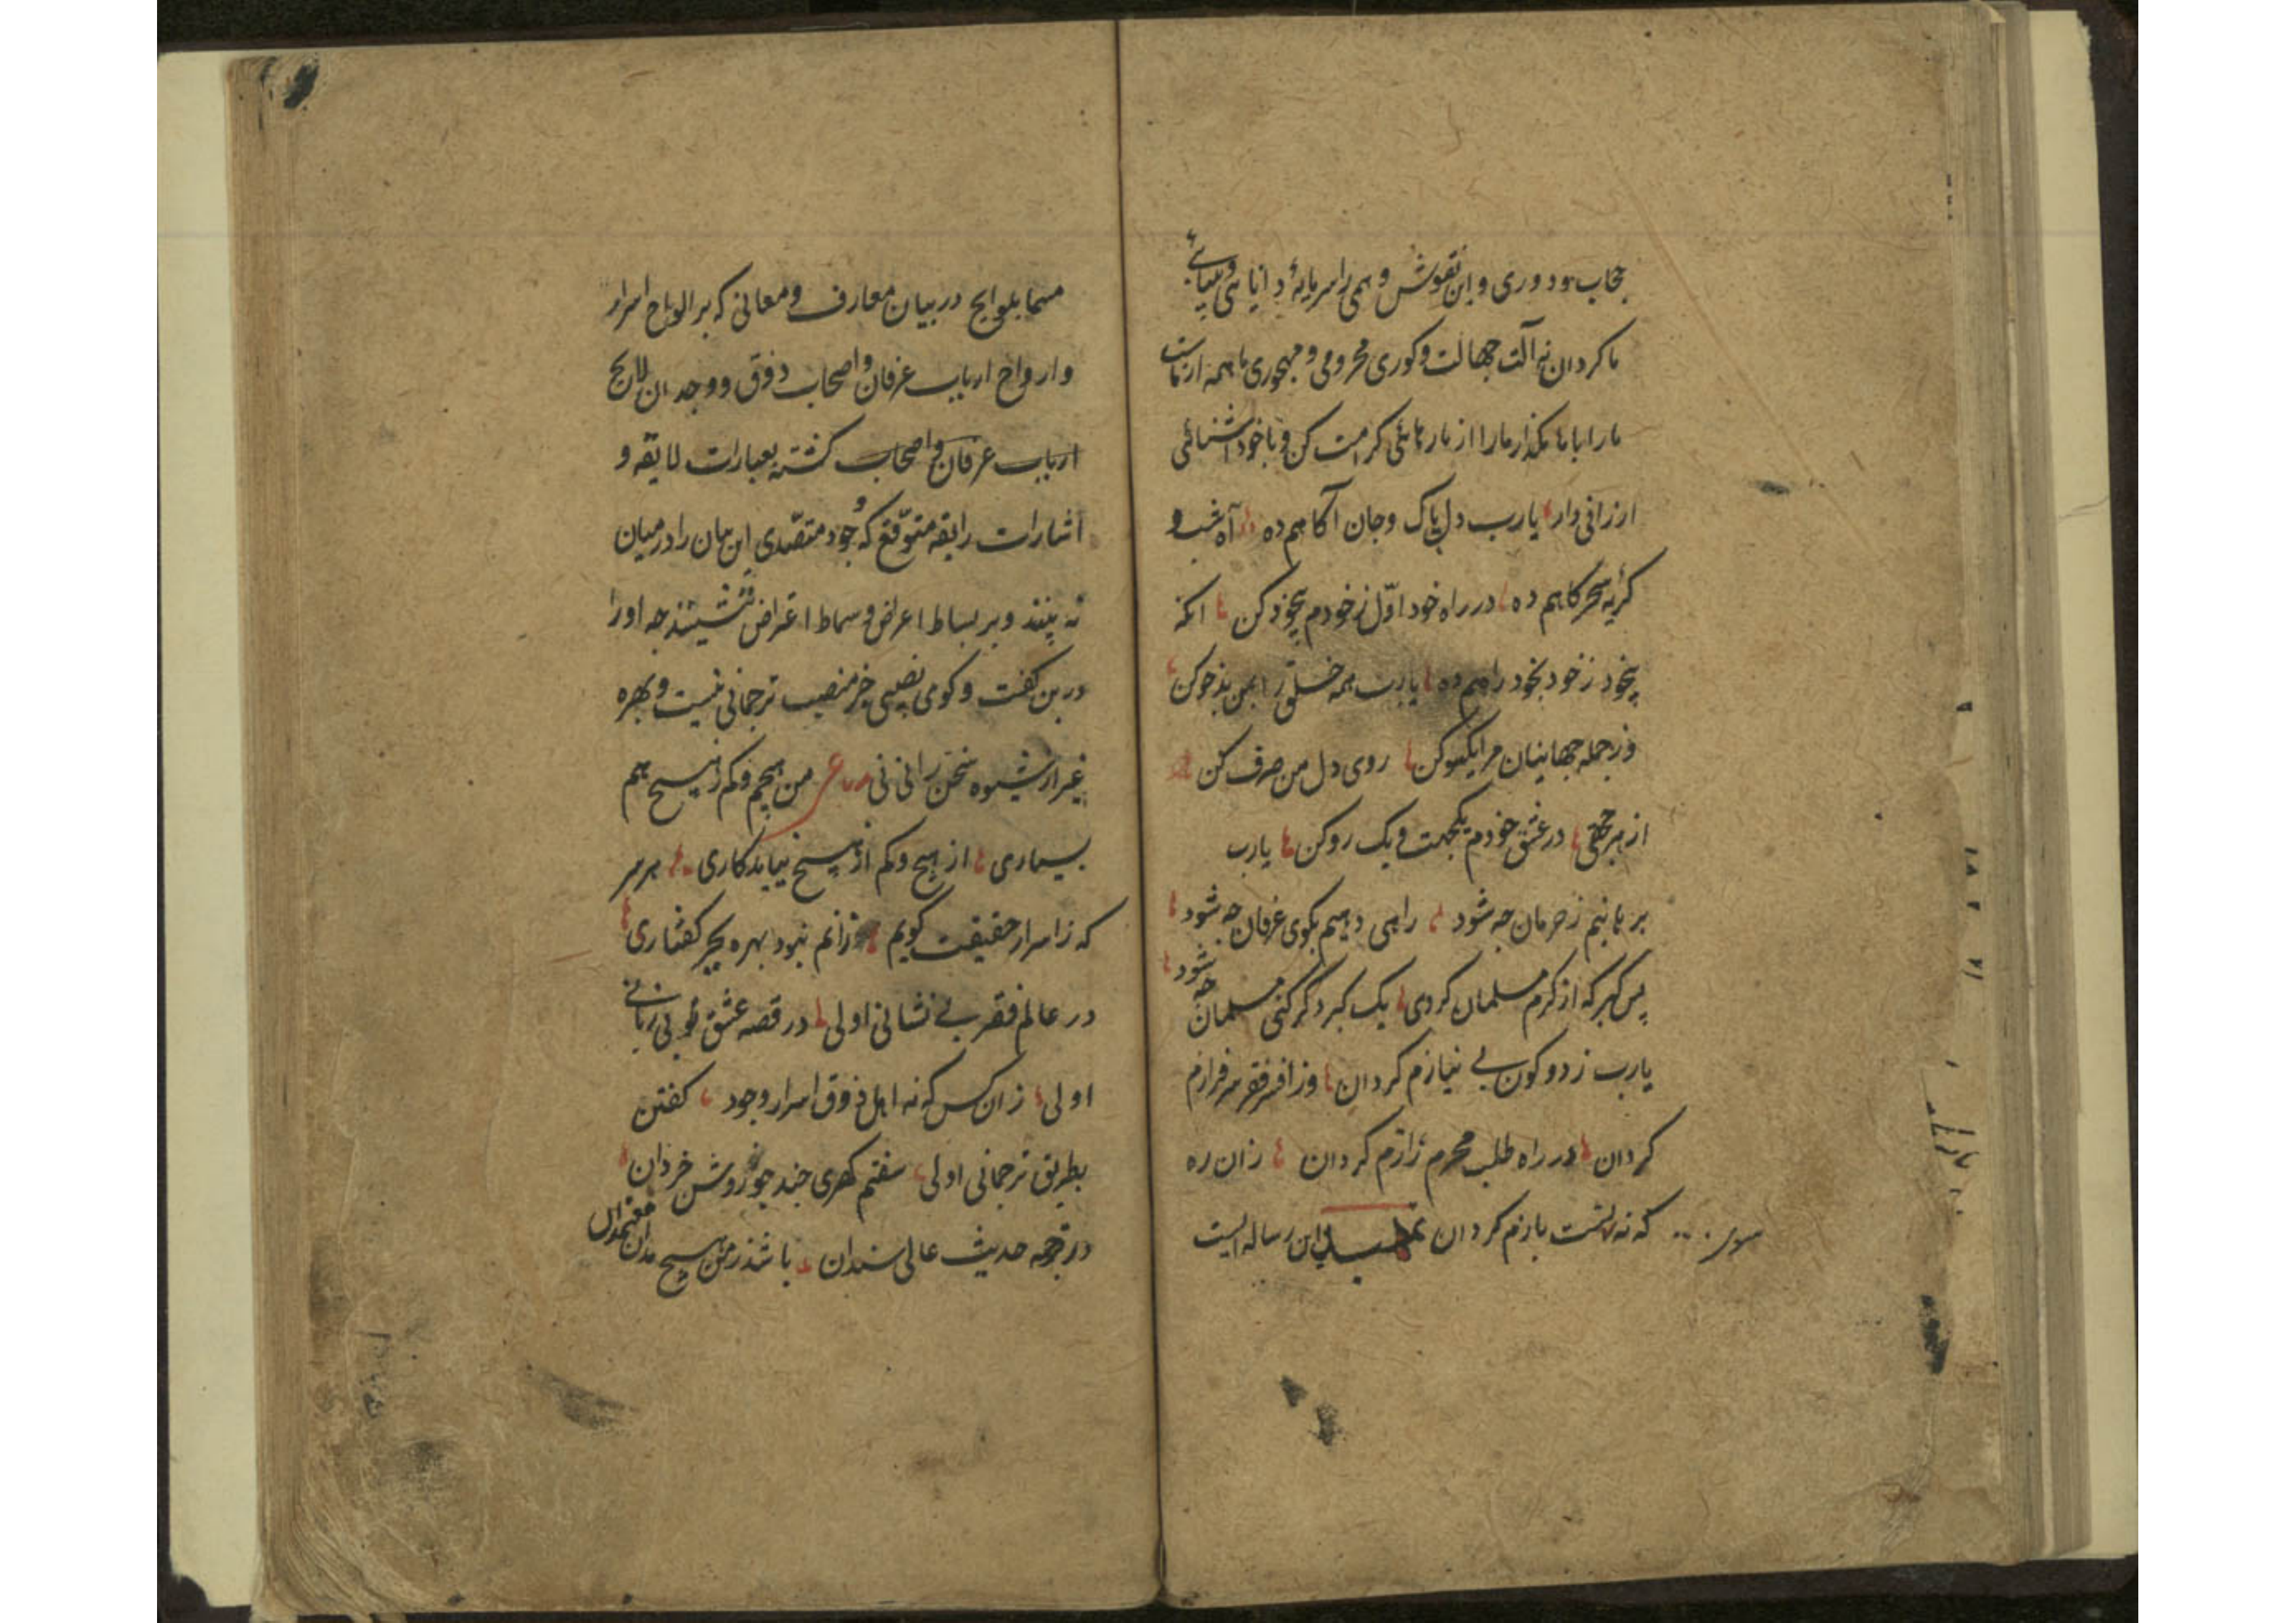 حجاب و دوری و این نقوش وهمی را سرمایهٔ دانایی و بینایی
ما کردان نه آلت جهالت و کوری محرومی و مهجوری ما همه از ماست
ما را با ما مکذار ما را از ما رهائی کرامت کن و با خود آشنائی
ارزانی دار یارب دل پاک و جان آکاهم ده آه شب و
کریه سحرکاهم ده در راه خود اول ز خودم بیخود کن انکه
بیخود ز خود بخود راهم ده یارب همه خلق را بمن بدخو کن
وز جمله جهانیان مرا یکسو کن روی دل من صرف کن
از هر جهتی در عشق خودم یکجهت و یک رو کن یارب
برهانیم ز حرمان چه شود راهی دهیم بکوی عرفان چه شود
بس کبر که از کرم مسلمان کردی یک کبر دکر کنی مسلمان چه شود
یارب ز دو کون بی نیازم کردان وز افسر فقر سرفرازم
کردان در راه طلب محرم رازم کردان زان ره
که نه سوی تست بازم کردان تمهید این رساله ایست
مسما بلوایح در بیان معارف و معانی که بر الواح اسرار
و ارواح ارباب عرفان و اصحاب ذوق و وجدان لایح
ارباب عرفان و اصحاب کشته بعبارات لایقه و
اشارات رایقه متوقع که وجود متصدی این بیان را در میان
نه بینند و بر بساط اعراض و سماط اعتراض ننشینند چه او را
درین کفت و کوی نصیبی جز منصب ترجمانی نیست و بهره
غیر از شیوه سخن رانی نی رباعی من هیچم و کم ز هیچ هم
بسیاری از هیچ و کم از هیچ نیاید کاری هر سر
که ز اسرار حقیقت کویم زانم نبود بهره بجز کفتاری
در عالم فقر بی نشانی اولی در قصه عشق بی زبانی
اولی زان کس که نه اهل ذوق اسرار وجود کفتن
بطریق ترجمانی اولی سفتم کهری چند چو روشن خردان
در ترجمه حدیث عالی سندان باشد ز من هیچ مدان معتمدان